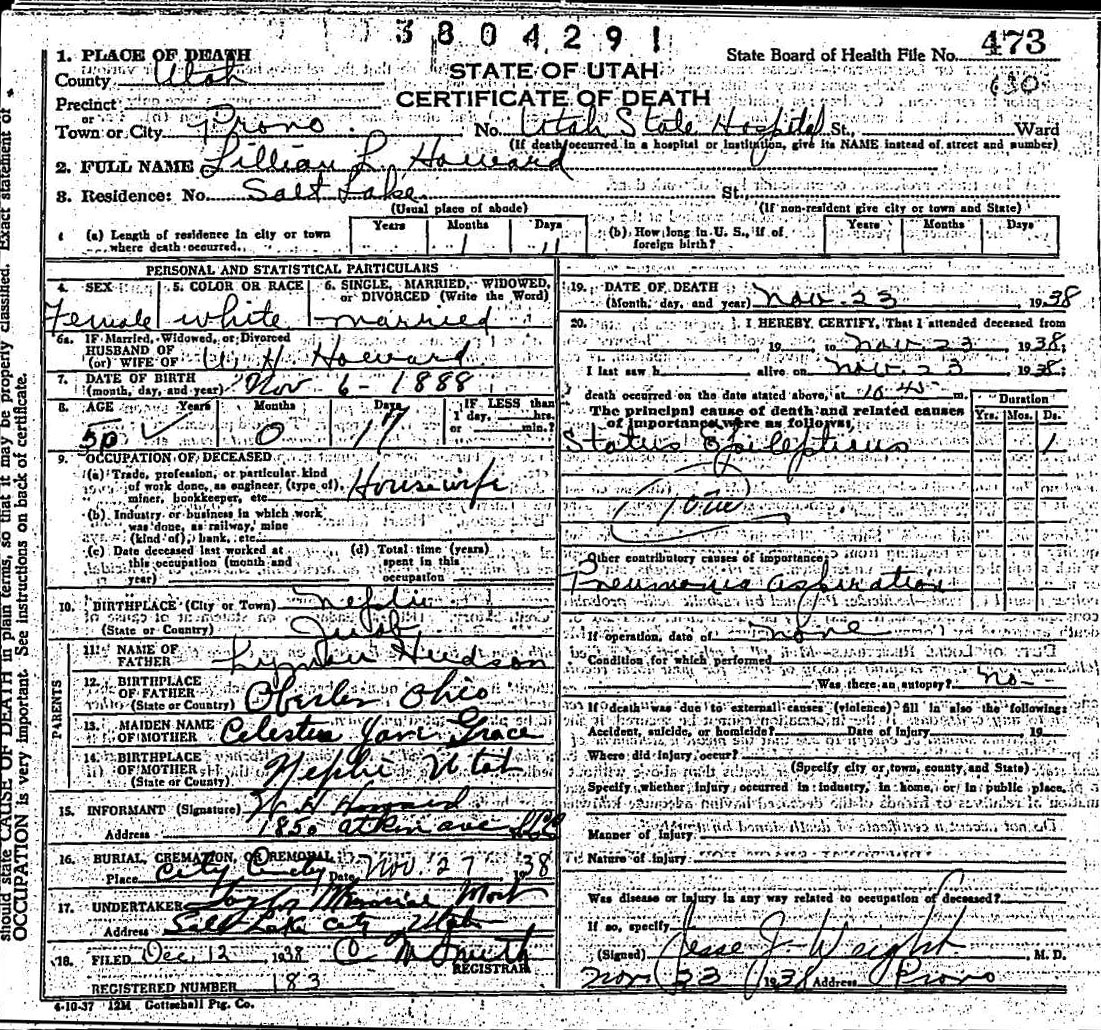 3804291
State Board of Health File No. 473
STATE OF UTAH
CERTIFICATE OF DEATH
1. PLACE OF DEATH
County Utah
Precinct
or
Town or City Provo. No. Utah State Hospital St., Ward
(If death occurred in a hospital or institution, give its NAME instead of street and number)
2. FULL NAME Lillian L. Howard
3. Residence: No. Salt Lake St.,
(Usual place of abode) (If non-resident give city or town and State)
(a) Length of residence in city or town where death occurred. Years Months 1 Days 11
(b) How long in U. S., if of foreign birth? Years Months Days
PERSONAL AND STATISTICAL PARTICULARS
4. SEX 5. COLOR OR RACE 6. SINGLE, MARRIED, WIDOWED, or DIVORCED (Write the Word)
Female white married
6a. IF Married, Widowed, or Divorced
HUSBAND OF
(or) WIFE OF W. H. Howard
7. DATE OF BIRTH
(month, day, and year) Nov 6 - 1888
8. AGE Years Months Days IF LESS than
1 day, hrs.
or min.?
50 0 17
9. OCCUPATION OF DECEASED
(a) Trade, profession, or particular kind
of work done, as engineer (type of),
miner, bookkeeper, etc. Housewife
(b) Industry or business in which work
was done, as railway, mine
(kind of), bank, etc.
(c) Date deceased last worked at
this occupation (month and
year)
(d) Total time (years)
spent in this
occupation
10. BIRTHPLACE (City or Town) Nephi
(State or Country) Juab
PARENTS
11. NAME OF
FATHER Lyman Hudson
12. BIRTHPLACE
OF FATHER
(State or Country) Oberlin Ohio
13. MAIDEN NAME
OF MOTHER Celestia Jane Grace
14. BIRTHPLACE
OF MOTHER
(State or County) Nephi Utah
15. INFORMANT (Signature) W H Howard
Address 1850 Atkin ave SLC
16. BURIAL, CREMATION, OR REMOVAL
Place City Date Nov. 27 1938
17. UNDERTAKER Memorial Mort
Address Salt Lake City Utah
18. FILED Dec. 12 1938 C M Smith
REGISTRAR
REGISTERED NUMBER 183
4-10-37 12M Gottschall Ptg. Co.
19. DATE OF DEATH
(Month, day, and year) Nov. 23 1938
20. I HEREBY CERTIFY, That I attended deceased from
19 to Nov 23 1938;
I last saw h alive on Nov. 23 1938;
death occurred on the date stated above, at 10 45 m.
The principal cause of death and related causes
of importance were as follows:
Duration
Yrs. Mos. Ds.
Status Epilepticus 1
Other contributory causes of importance:
Pneumonia aspiration
If operation, date of none
Condition for which performed
Was there an autopsy? no
If death was due to external causes (violence) fill in also the following:
Accident, suicide, or homicide? Date of Injury 19
Where did injury occur?
(Specify city or town, county, and State)
Specify whether injury occurred in industry, in home, or in public place.
Manner of Injury
Nature of Injury
Was disease or injury in any way related to occupation of deceased?
If so, specify
(Signed) Jesse J. Wright M. D.
Nov 23 1938 Address Provo
should state CAUSE OF DEATH in plain terms, so that it may be properly classified. Exact statement of
OCCUPATION is very important. See instructions on back of certificate.